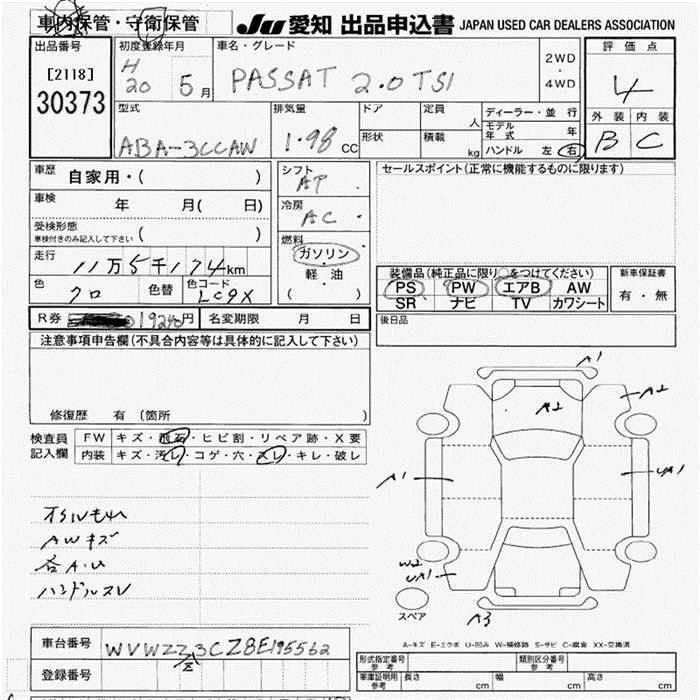 車内保管・守衛保管
JU 愛知 出品申込書 JAPAN USED CAR DEALERS ASSOCIATION
出品番号 初度登録年月 車名・グレード 評価点
[2118] H 20 5月 PASSAT 2.0TSI 2WD ・ 4WD 4
30373
型式 排気量 ドア 定員 人 ディーラー・並行 外装 内装
ABA-3CCAW 1.98 CC 形状 積載 kg モデル年式 年 B C
ハンドル 左 右
車歴 自家用・( ) シフト AT セールスポイント(正常に機能するものに限ります)
車検 年 月( 日) 冷房 AC
受検形態 ( )
車検付きのみ記入して下さい
燃料 ガソリン・軽油 ( )
走行 11万5千174km
装備品(純正品に限り○をつけてください) 新車保証書
色 クロ 色替 色コード LC9X
PS PW エアB AW 有・無
SR ナビ TV カワシート
R券 19240円 名変期限 月 日 後日品
注意事項申告欄(不具合内容等は具体的に記入して下さい)
修復歴 有 (箇所
検査員記入欄 FW キズ・飛石・ヒビ割・リペア跡・X要
内装 キズ・汚レ・コゲ・穴・スレ・キレ・破レ
AWキズ
各A・U
ハンドルスレ
A1
A2
A2
A1
UA1
W2
UA1
A3
スペア
A-キズ E-エクボ U-凹み W-補修跡 S-サビ C-腐食 XX-交換済
車台番号 WVWZZZ3CZ8E195562
登録番号
形式指定番号 参考 類別区分番号 参考
車庫証明用 参考 長さ cm 幅 cm 高さ cm